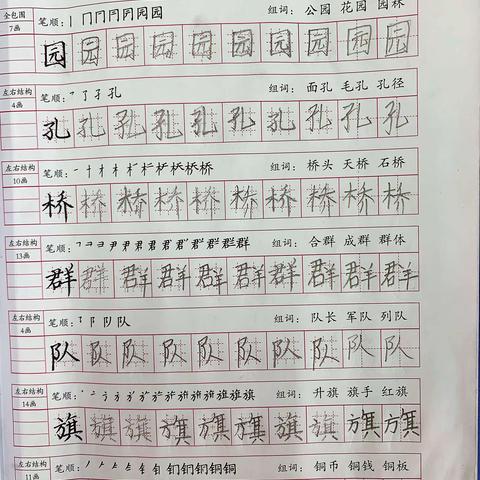 全包围 笔顺: 丨 冂 冂 冃 冃 园 园 组词: 公园 花园 园林
7画 园 园 园 园 园 园 园 园 园 园
左右结构 笔顺: 孔 组词: 面孔 毛孔 孔径
4画 孔 孔 孔 孔 孔 孔 孔 孔 孔 孔
左右结构 笔顺: 一 十 才 木 桥 桥 组词: 桥头 天桥 石桥
10画 桥 桥 桥 桥 桥 桥 桥 桥 桥 桥
左右结构 笔顺: 尹 君 君 群 群 组词: 合群 成群 群体
13画 群 群 群 群 群 群 群 群 群 群
左右结构 笔顺: 阝 队 队 组词: 队长 军队 列队
4画 队 队 队 队 队 队 队 队 队 队
左右结构 笔顺: 方 旗 旗 组词: 升旗 旗手 红旗
14画 旗 旗 旗 旗 旗 旗 旗 旗 旗 旗
左右结构 笔顺: 钅 铜 铜 组词: 铜币 铜钱 铜板
11画